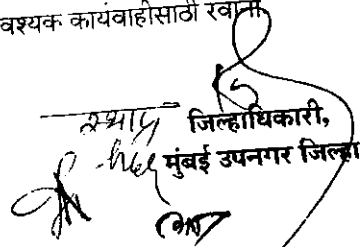 वश्यक कार्यवाहीसाठी रवाना
जिल्हाधिकारी,
मुंबई उपनगर जिल्हा